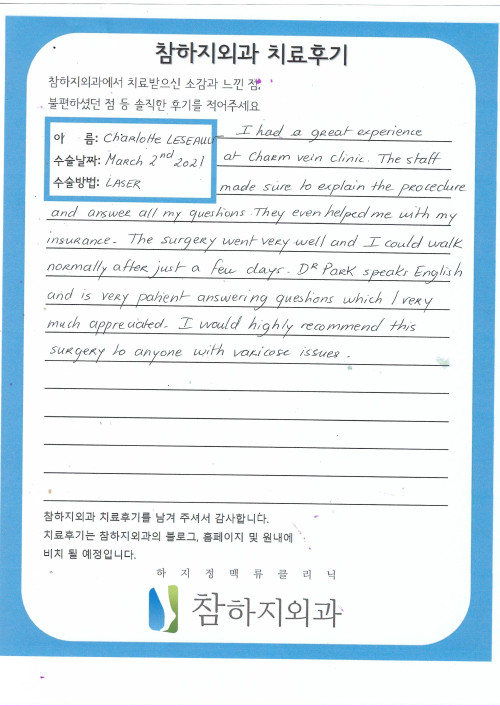 참하지외과 치료후기
참하지외과에서 치료받으신 소감과 느낀 점,
불편하셨던 점 등 솔직한 후기를 적어주세요
아 름: Charlotte LESEAULT
수술날짜: March 2nd 2021
수술방법: LASER
I had a great experience
at Charm vein clinic. The staff
made sure to explain the procedure
and answer all my questions They even helped me with my
insurance. The surgery went very well and I could walk
normally after just a few days. DR PARK speaks English
and is very patient answering questions which I very
much appreciated. I would highly recommend this
surgery to anyone with varicose issues.
참하지외과 치료후기를 남겨 주셔서 감사합니다.
치료후기는 참하지외과의 블로그, 홈페이지 및 원내에
비치 될 예정입니다.
하지정맥류클리닉
참하지외과